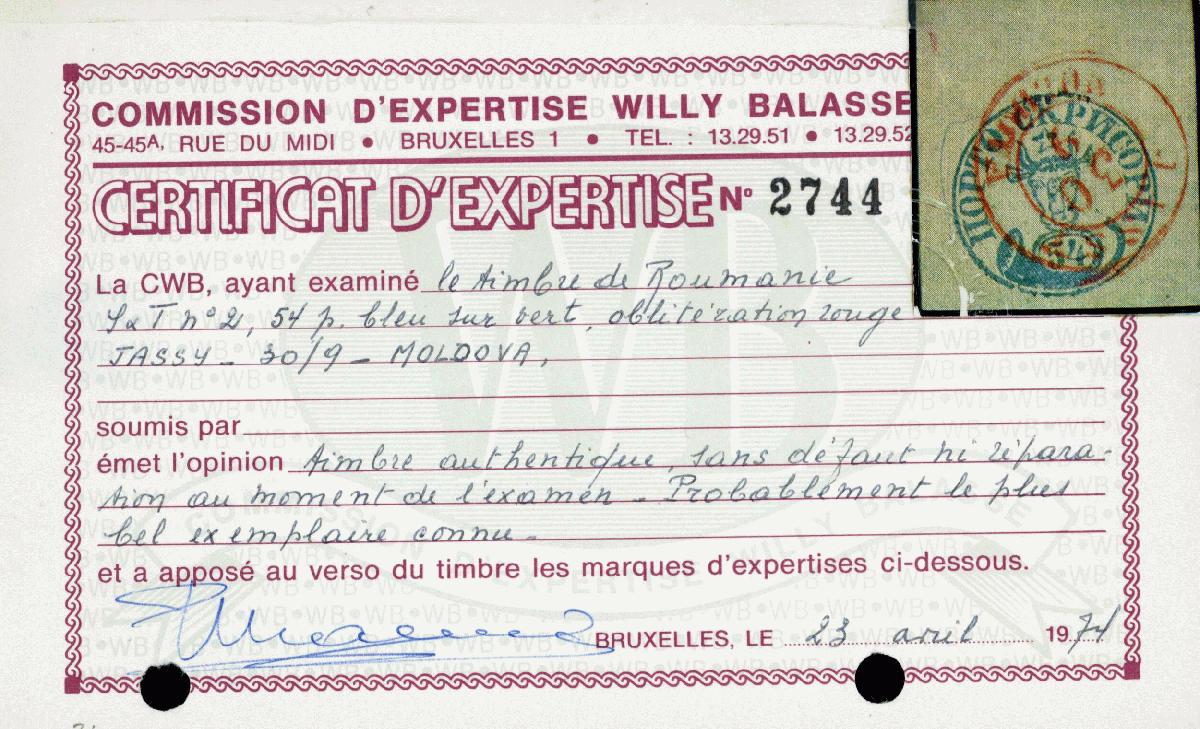 COMMISSION D'EXPERTISE WILLY BALASSE
45-45A, RUE DU MIDI • BRUXELLES 1 • TEL. : 13.29.51 13.29.52
CERTIFICAT D'EXPERTISE N° 2744
La CWB, ayant examiné le timbre de Roumanie
Y&T n° 2, 54 p. bleu sur vert, oblitération rouge
JASSY - 30/9 - MOLDOVA,
soumis par
émet l'opinion timbre authentique, sans défaut ni répara-
tion au moment de l'examen - Probablement le plus
bel exemplaire connu -
et a apposé au verso du timbre les marques d'expertises ci-dessous.
BRUXELLES, LE 23 avril 1974
ПОРТО СКРИСОРИ
54
30
9
WB
COMMISSION D'EXPERTISE WILLY BALASSE